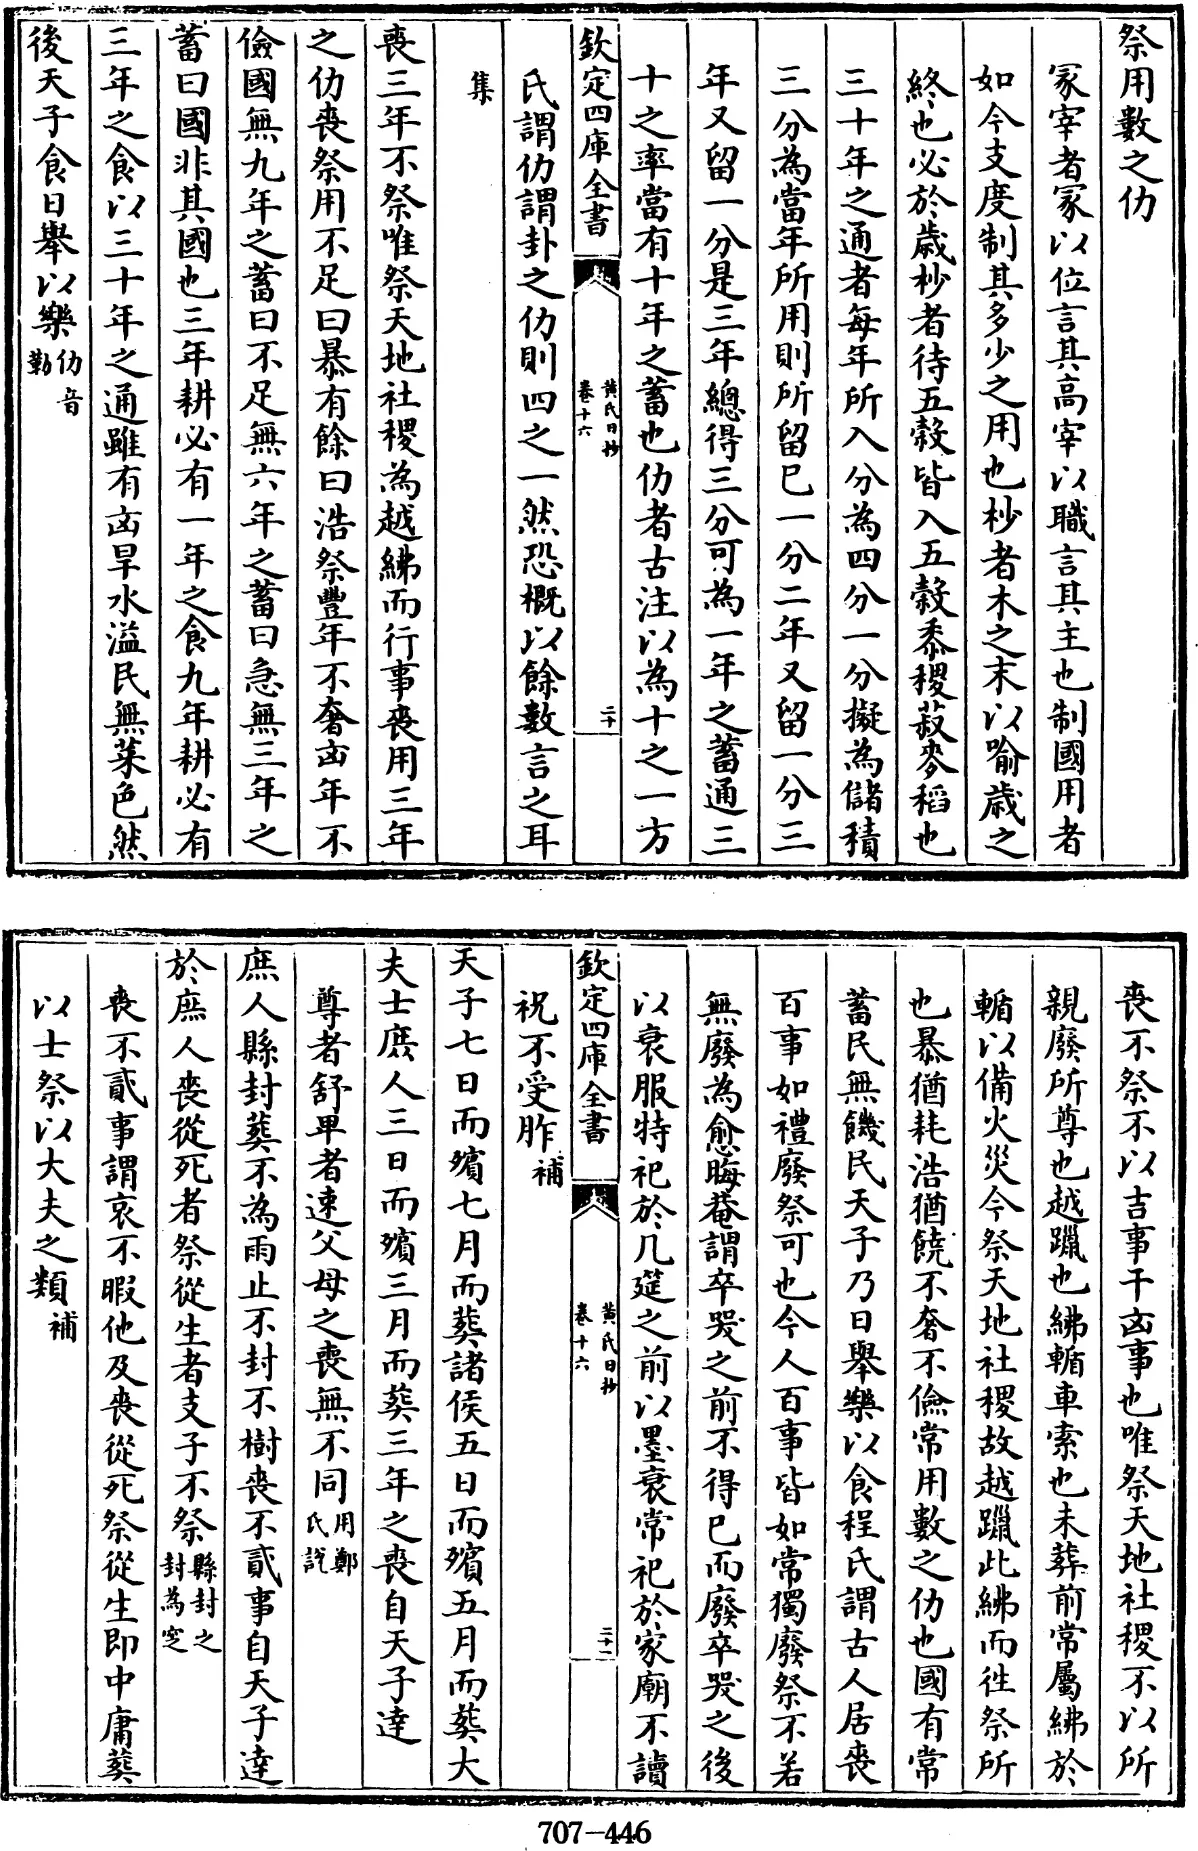 祭用數之仂
冢宰者冢以位言其高宰以職言其主也制國用者
如今支度制其多少之用也杪者木之末以喻歲之
終也必於歲杪者待五穀皆入五穀黍稷菽麥稻也
三十年之通者每年所入分為四分一分擬為儲積
三分為當年所用則所留已一分二年又留一分三
年又留一分是三年總得三分可為一年之蓄通三
十之率當有十年之蓄也仂者古注以為十之一方
欽定四庫全書
黄氏日抄
卷十六
二十
氏謂仂謂卦之仂則四之一然恐概以餘數言之耳
集
喪三年不祭唯祭天地社稷為越紼而行事喪用三年
之仂喪祭用不足曰暴有餘曰浩祭豐年不奢凶年不
儉國無九年之蓄曰不足無六年之蓄曰急無三年之
蓄曰國非其國也三年耕必有一年之食九年耕必有
三年之食以三十年之通雖有凶旱水溢民無菜色然
後天子食日舉以樂仂音
勒
喪不祭不以吉事干凶事也唯祭天地社稷不以所
親廢所尊也越躐也紼輴車索也未葬前常屬紼於
輴以備火災今祭天地社稷故越躐此紼而徃祭所
也暴猶耗浩猶饒不奢不儉常用數之仂也國有常
蓄民無饑民天子乃日舉樂以食程氏謂古人居喪
百事如禮廢祭可也今人百事皆如常獨廢祭不若
無廢為愈晦菴謂卒哭之前不得已而廢卒哭之後
以衰服特祀於几筵之前以墨衰常祀於家廟不讀
欽定四庫全書
黄氏日抄
卷十六
二十一
祝不受胙補
天子七日而殯七月而葬諸侯五日而殯五月而葬大
夫士庶人三日而殯三月而葬三年之喪自天子達
尊者舒卑者速父母之喪無不同用鄭
氏說
庶人縣封葬不為雨止不封不樹喪不貳事自天子達
於庶人喪從死者祭從生者支子不祭縣封之
封為窆
喪不貳事謂哀不暇他及喪從死祭從生即中庸葬
以士祭以大夫之類補
707-446